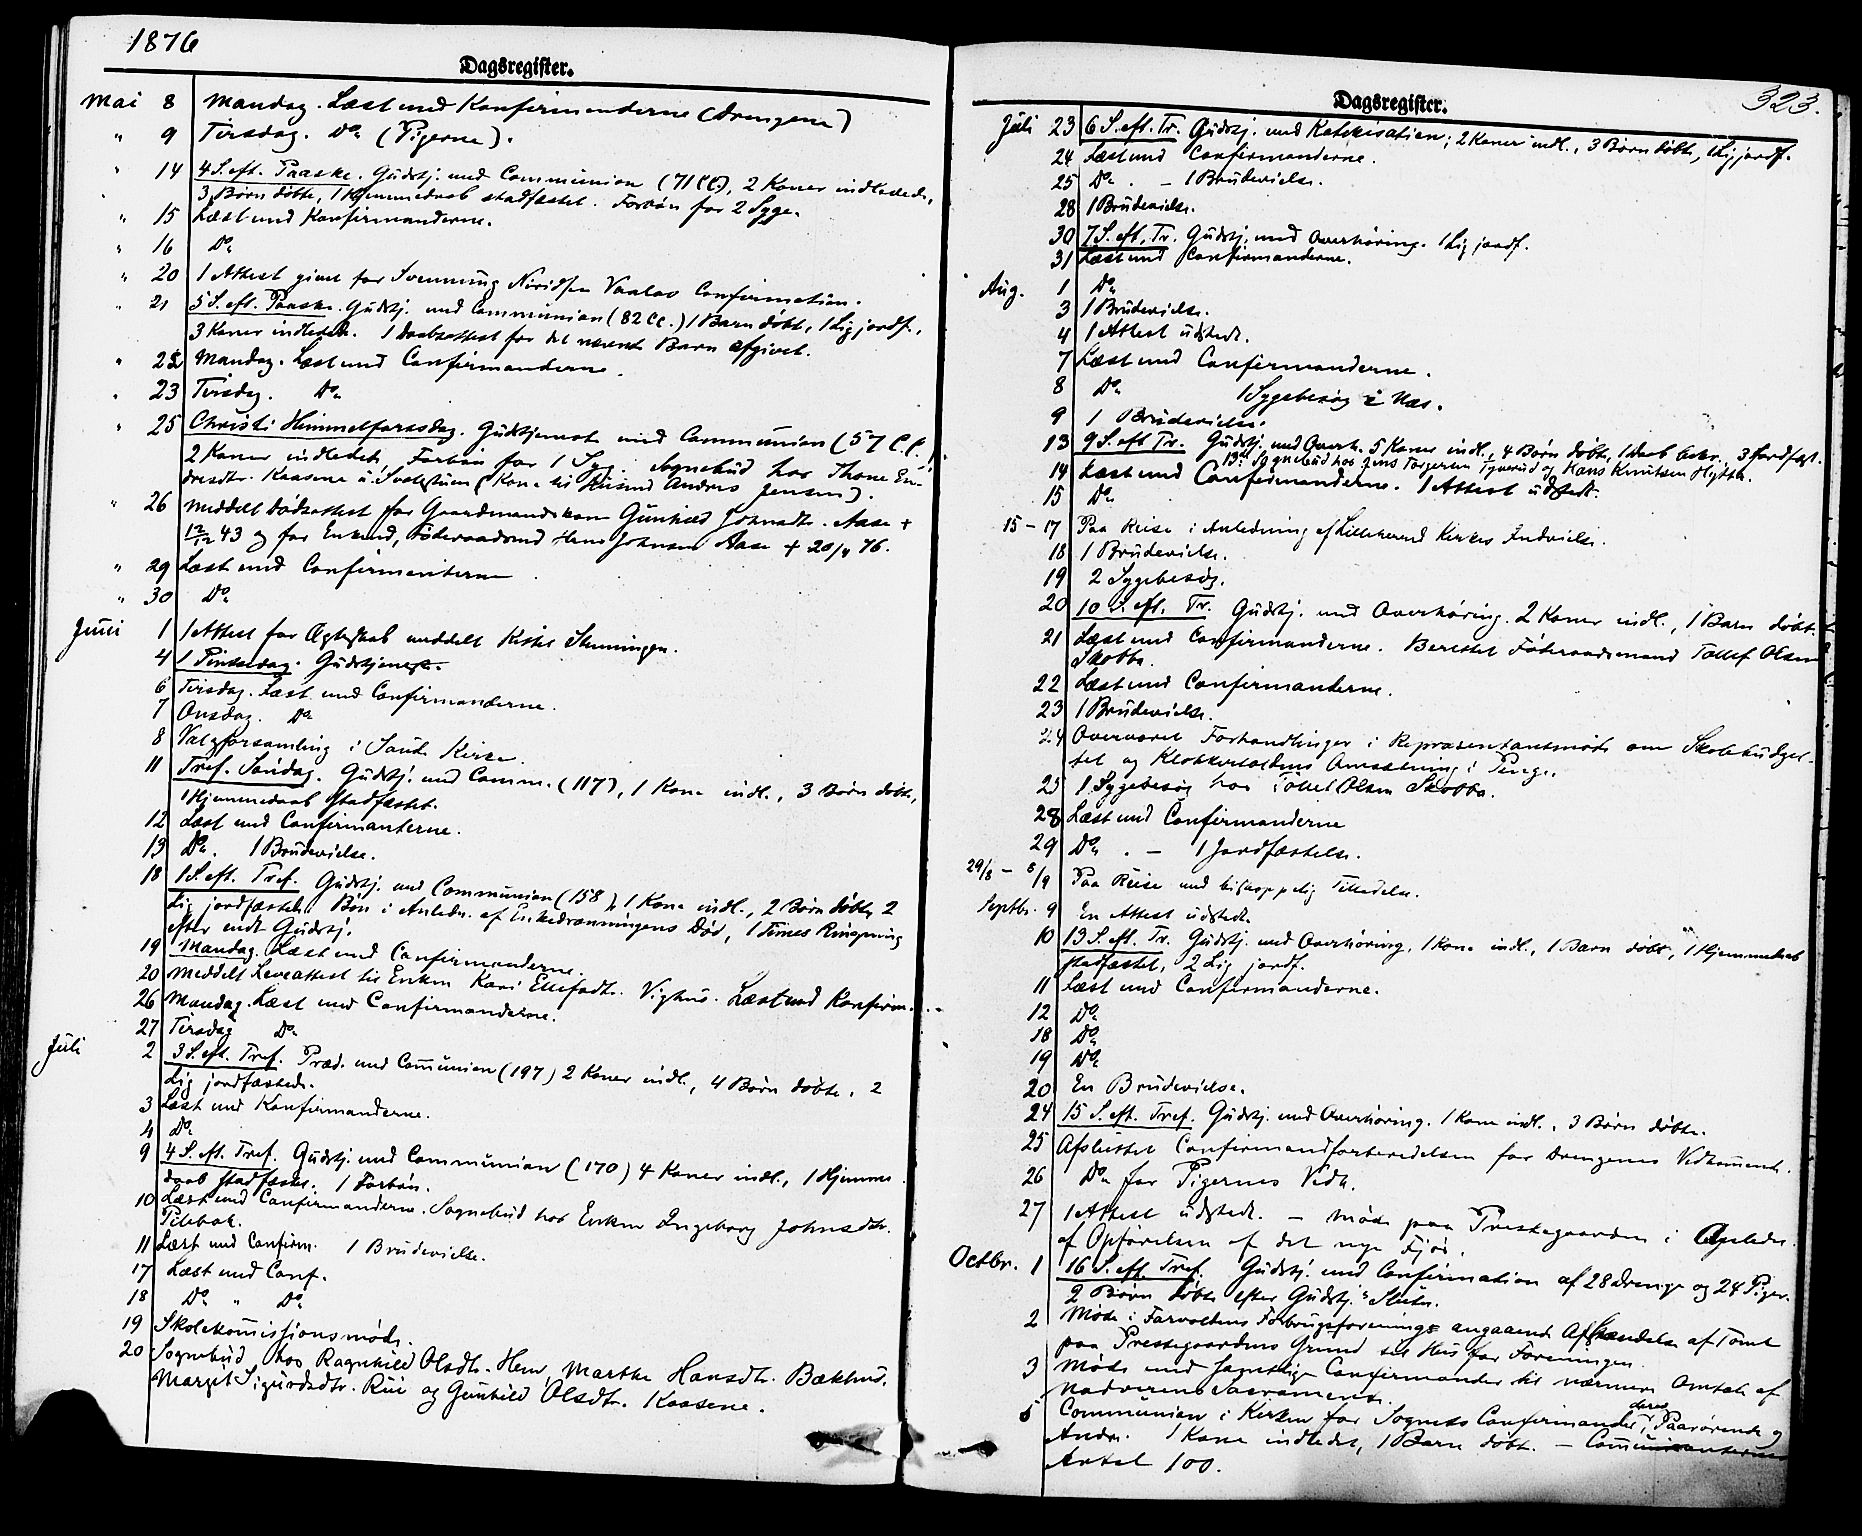 1876
Dagsregister.
Mai 8 Mandag. Læst med Konfirmanderne (Drengene)
" 9 Tirsdag. Do (Pigerne).
" 14 4 S. eft. Paaske. Gudstj. med Communion (71 CC.), 2 Koner indledede,
3 Børn døbte, 1 Hjemmedaab stadfæstet. Forbøn for 2 Syge.
" 15 Læst med Konfirmanderne.
" 16 Do
" 20 1 Attest givet for Svenning Confirmation.
" 21 5 S. eft. Paaske. Gudstj. med Communion (82 CC.) 1 Barn døbt, 1 Lig jordf.,
3 Koner indledede. 1 Daabsattest for det nævnte Barn afgivet.
" 22 Mandag. Læst med Confirmanderne.
" 23 Tirsdag. Do
" 25 Christi Himmelfartsdag. Gudstjeneste med Communion (57 CC.),
2 Koner indledet, Forbøn for 1 Syg. Sognebud hos Thone En-
dresdtr. Kaasene u. (Kone til Husmd Anders Jensen).
" 26 Meddelt Dødsattest for Gaardmandskone Gunhild Johnsdtr. Aase +
12/12 43 og for Enkemd, Føderaadsmd Hans Johnsen Aase + 20/4 76.
" 29 Læst med Confirmanterne.
" 30 Do
Juni 1 1 Attest for Ægteskab meddelt Kittel Stenningen.
4 1 Pintsedag. Gudstjeneste.
6 Tirsdag. Læst med Confirmanderne.
7 Onsdag. Do
8 Valgforsamling i Saude Kirke.
11 Tref. Søndag. Gudstj. med Comm. (117), 1 Kone indl., 3 Børn døbte,
1 Hjemmedaab stadfæstet.
12 Læst med Confirmanterne.
13 Do. 1 Brudevielse.
18 1 S. eft. Tref. Gudstj. med Communion (158), 1 Kone indl., 2 Børn døbte, 2
Lig jordfæstede. Bøn i Anledn. af Enkedronningens Død, 1 Times Ringning
efter endt Gudstj.
19 Mandag. Læst med Confirmanderne.
20 Meddelt Leveattest til Enken Kari Ellefsdtr. Vighus. Læst med Konfirm.
26 Mandag. Læst med Confirmanderne.
27 Tirsdag Do
Juli 2 3 S. eft. Tref. Præd. med Communion (197) 2 Koner indl., 4 Børn døbte, 2
Lig jordfæstede.
3 Læst med Konfirmanderne.
4 Do
9 4 S. eft. Tref. Gudstj. med Communion (170) 4 Koner indl., 1 Hjemme-
daab stadfæstet. 1 Forbøn.
10 Læst med Confirmanderne. Sognebud hos Enken Ingeborg Johnsdtr.
Pilebak.
11 Læst med Confirm. 1 Brudevielse.
17 Læst med Conf.
18 Do " Do
19 Skolekommissionsmøde.
20 Sognebud hos Ragnhild Olsdtr. Hem, Marthe Hansdtr. Bækhus,
Margit Sigurdsdtr. Rui og Gunhild Olsdtr. Kaasene.
Dagsregister.
323.
Juli 23 6 S. eft. Tr. Gudstj. med Katekisation; 2 Koner indl., 3 Børn døbte, 1 Lig jordf.
24 Læst med Confirmanderne.
25 Do. – 1 Brudevielse.
28 1 Brudevielse.
30 7 S. eft. Tr. Gudstj. med Overhøring. 1 Lig jordf.
31 Læst med Confirmanderne.
Aug. 1 Do
3 1 Brudevielse.
4 1 Attest udstedt.
7 Læst med Confirmanderne.
8 Do 1 Sygebesøg i Næs.
9 1 Brudevielse.
13 9 S. eft Tr. Gudstj. med Overh. 5 Koner indl., 4 Børn døbte, 1 Daab bekr., 3 Jordfæst.
13de Sognebud hos Jens Torgersen og Hans Knutsen Hytten.
14 Læst med Confirmanderne. 1 Attest udstedt.
15 Do
15–17 Paa Reise i Anledning af Lilleherred Kirkes Indvielse.
18 1 Brudevielse.
19 2 Sygebesøg.
20 10 S. eft. Tr. Gudstj. med Overhøring. 2 Koner indl., 1 Barn døbt.
21 Læst med Confirmanderne. Berettet Føderaadsmand Tollef Olsen
Skobba.
22 Læst med Confirmanderne.
23 1 Brudevielse.
24 Overværet Forhandlinger i Repræsentantmøde om Skolebudget-
tet og Klokkertoldens Omsætning i Penge.
25 1 Sygebesøg hos Tollef Olsen Skobba.
28 Læst med Confirmanderne
29 Do. – 1 Jordfæstelse.
29/8 – 8/9 Paa Reise med biskoppelig Tilladelse.
Septbr. 9 En Attest udstedt.
10 13 S. eft. Tr. Gudstj. med Overhøring, 1 Kone indl., 1 Barn døbt, 1 Hjemmedaab
stadfæstet, 2 Lig jordf.
11 Læst med Confirmanderne.
12 Do
18 Do
19 Do
20 En Brudevielse.
24 15 S. eft. Tref. Gudstj. med Overhøring. 1 Kone indl., 3 Børn døbte.
25 Afsluttet Confirmandforberedelsen for Drengenes Vedkommende.
26 Do for Pigernes Vedk.
27 1 Attest udstedt. – Møde paa Prestegaarden i Anledn.
af Opførelsen af det nye Fjøs.
Octbr. 1 16 S. eft. Tref. Gudstj. med Confirmation af 28 Drenge og 24 Piger.
2 Børn døbte efter Gudstj.s Slutn.
2 Møde i Farvoldens Forbrugsforening angaaende Afhændelse af Tomt
paa Prestegaardens Grund til Hus for Foreningen.
3 Møde med samtlige Confirmander til nærmere Omtale af
Nadverens Sacrament.
5 Communion i Kirken for Sognets Confirmander, deres Paarørende og
Andre. 1 Kone indledet, 1 Barn døbt. – Communicanternes
Antal 100.